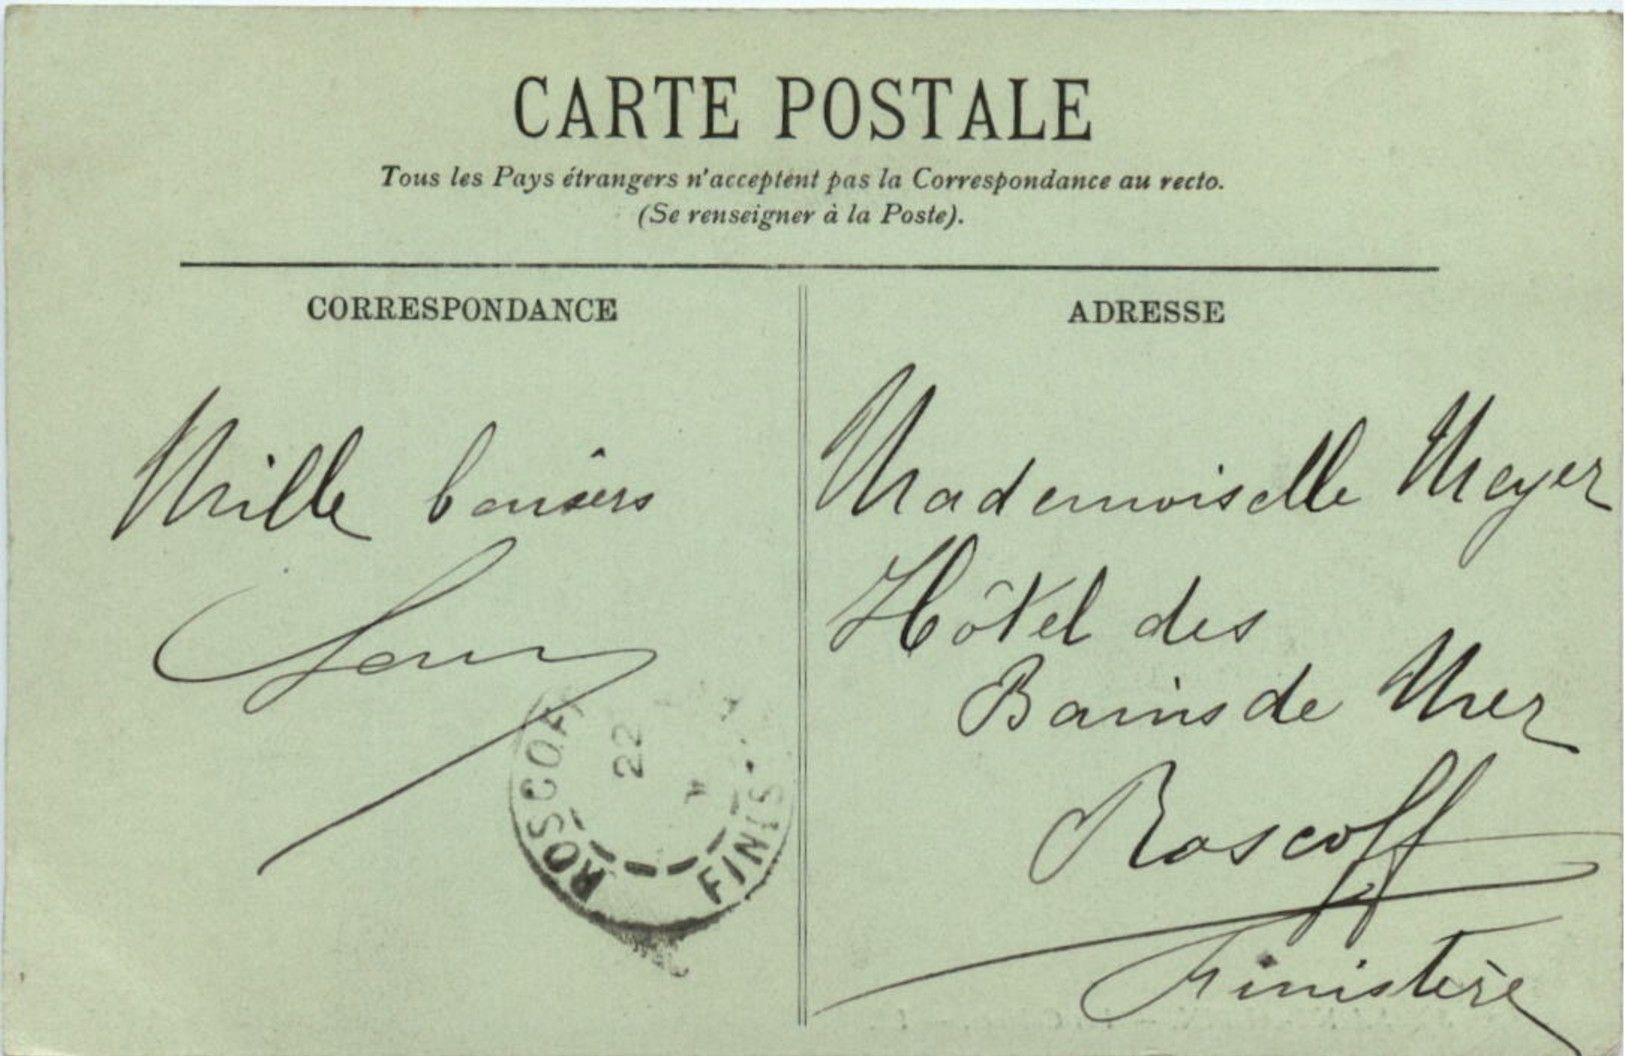 CARTE POSTALE
Tous les Pays étrangers n'acceptent pas la Correspondance au recto.
(Se renseigner à la Poste).
CORRESPONDANCE
Mille baisers
ROSCOFF
22
FINIS
ADRESSE
Mademoiselle Meyer
Hôtel des
Bains de Mer
Roscoff
Finistère